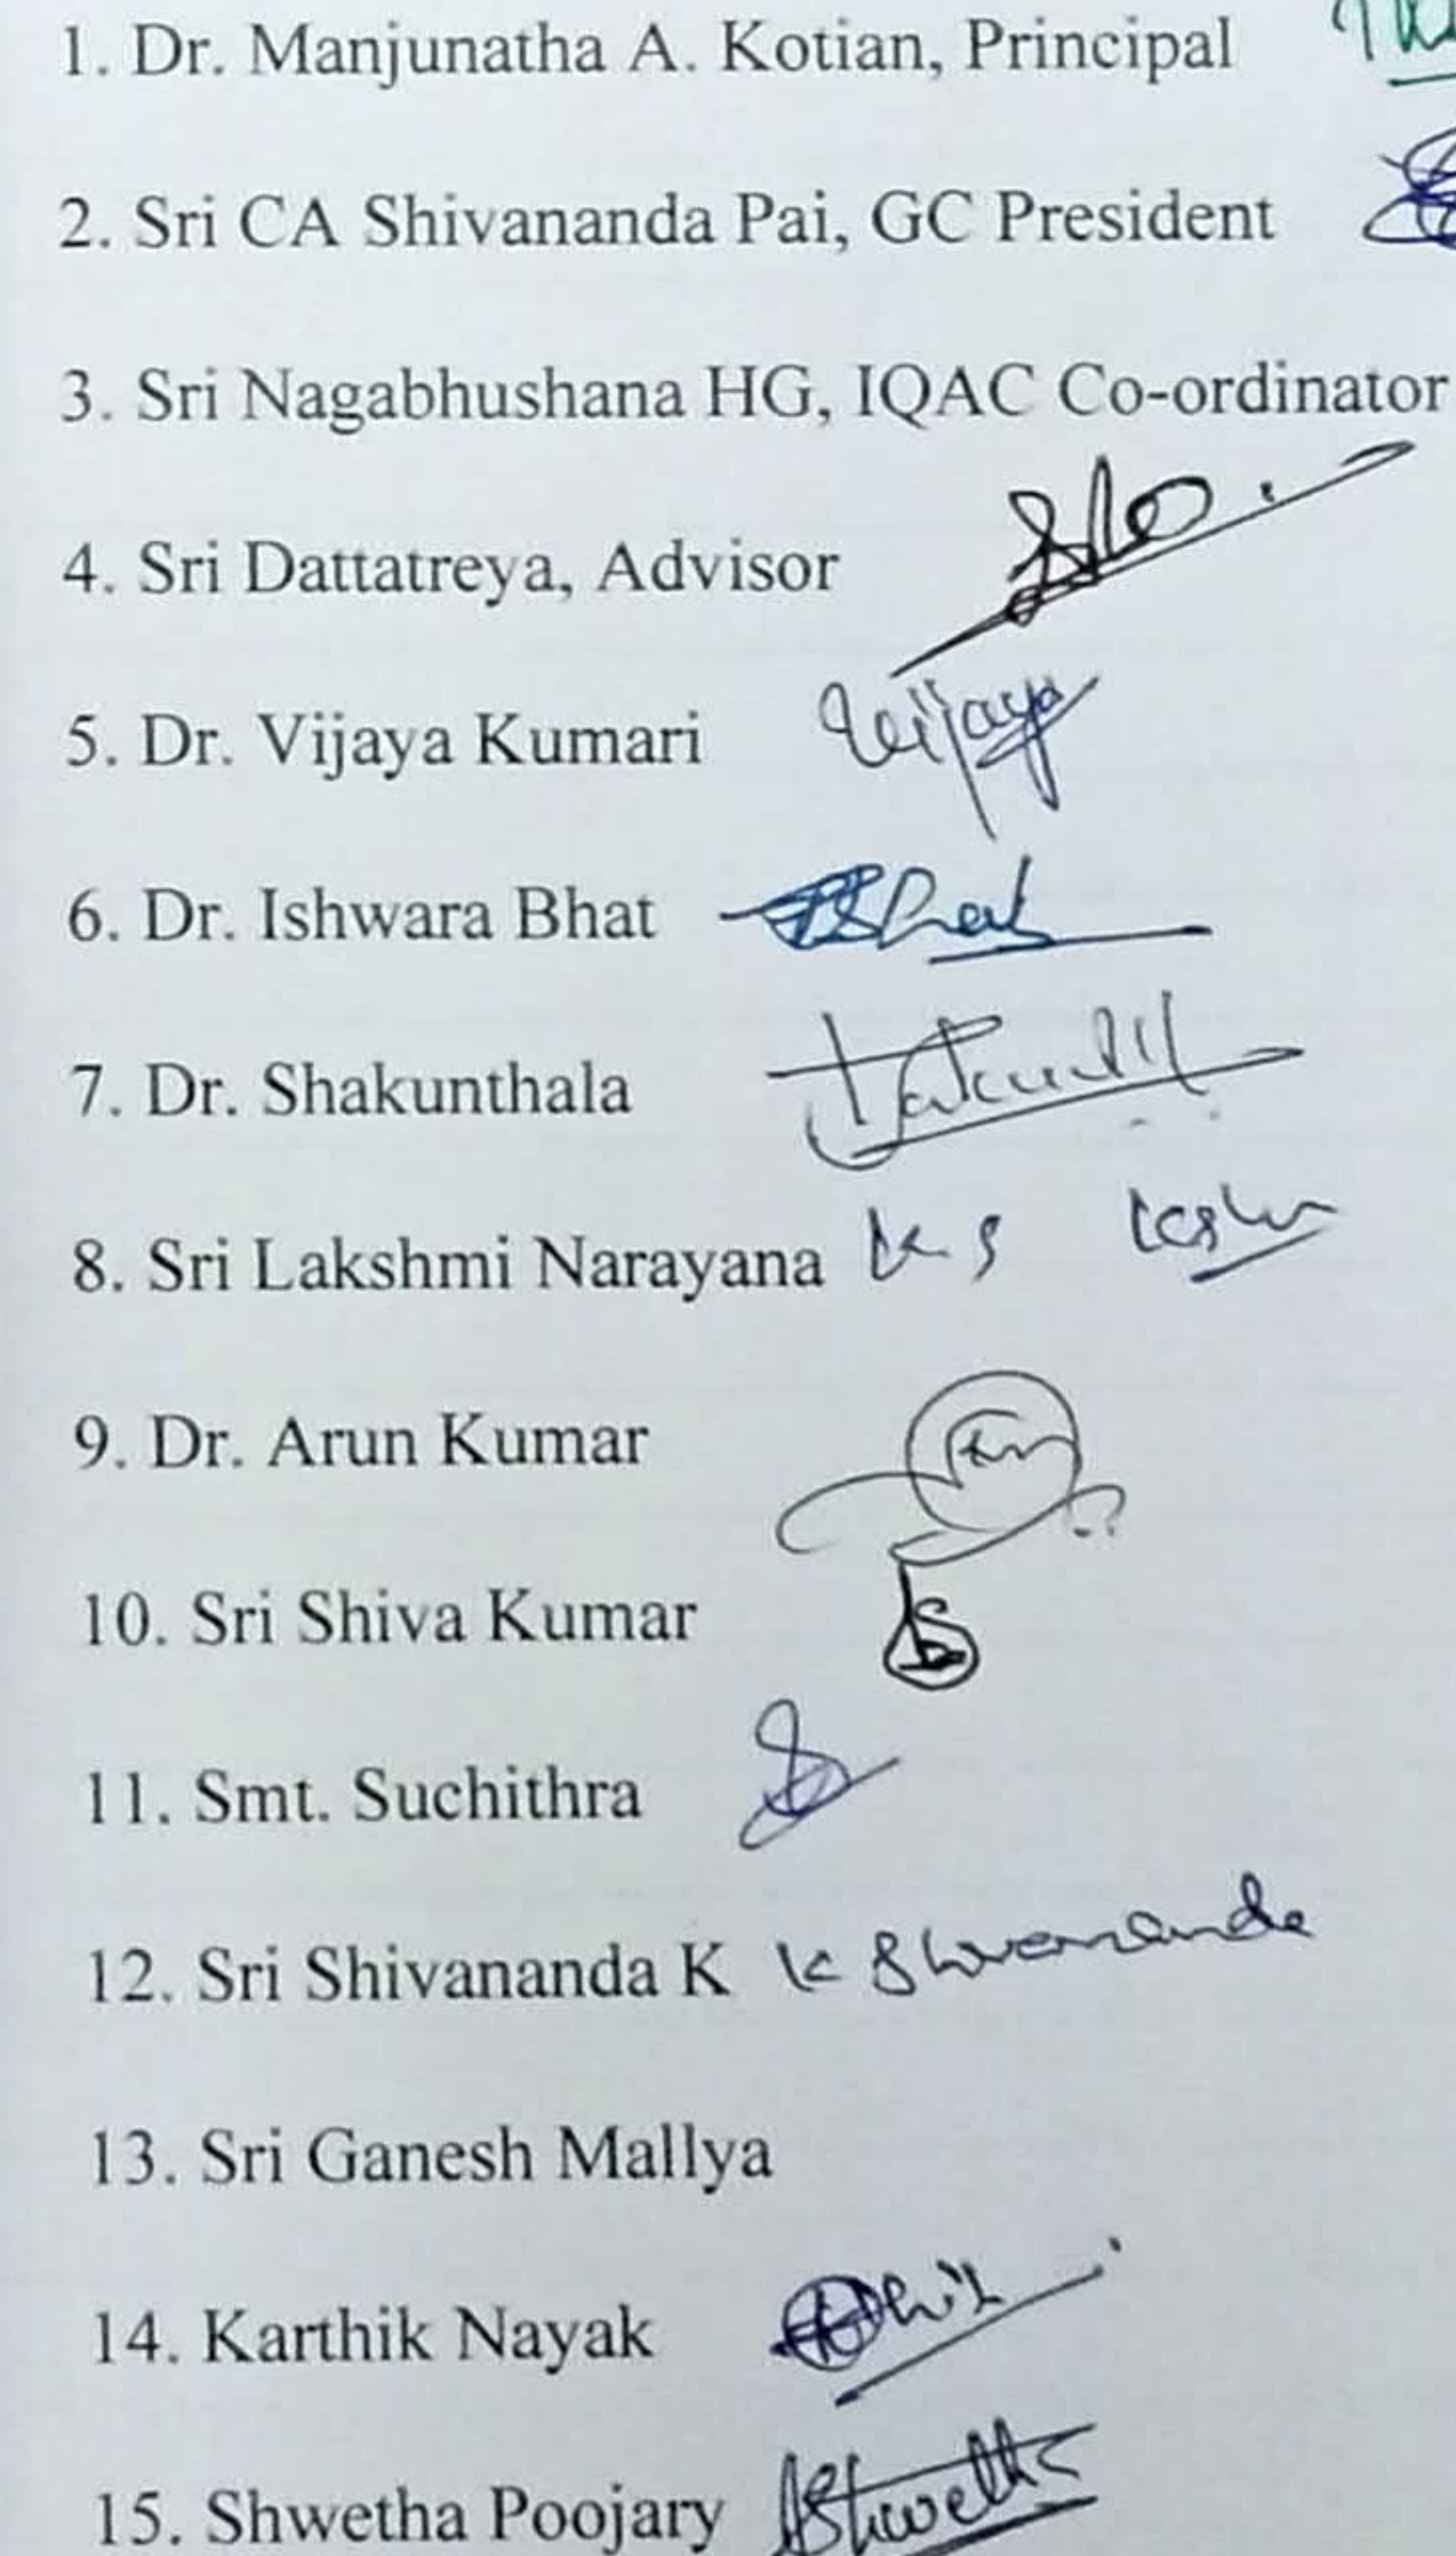 1. Dr. Manjunatha A. Kotian, Principal
2. Sri CA Shivananda Pai, GC President
3. Sri Nagabhushana HG, IQAC Co-ordinator
4. Sri Dattatreya, Advisor
5. Dr. Vijaya Kumari Vijaya
6. Dr. Ishwara Bhat
7. Dr. Shakunthala
8. Sri Lakshmi Narayana K S
9. Dr. Arun Kumar
10. Sri Shiva Kumar
11. Smt. Suchithra
12. Sri Shivananda K K Shivananda
13. Sri Ganesh Mallya
14. Karthik Nayak
15. Shwetha Poojary Shwetha